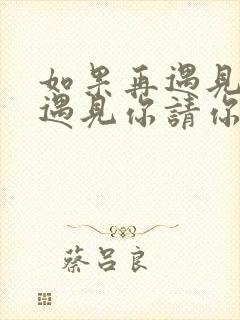 如果再遇見
遇見你請你
蔡呂良